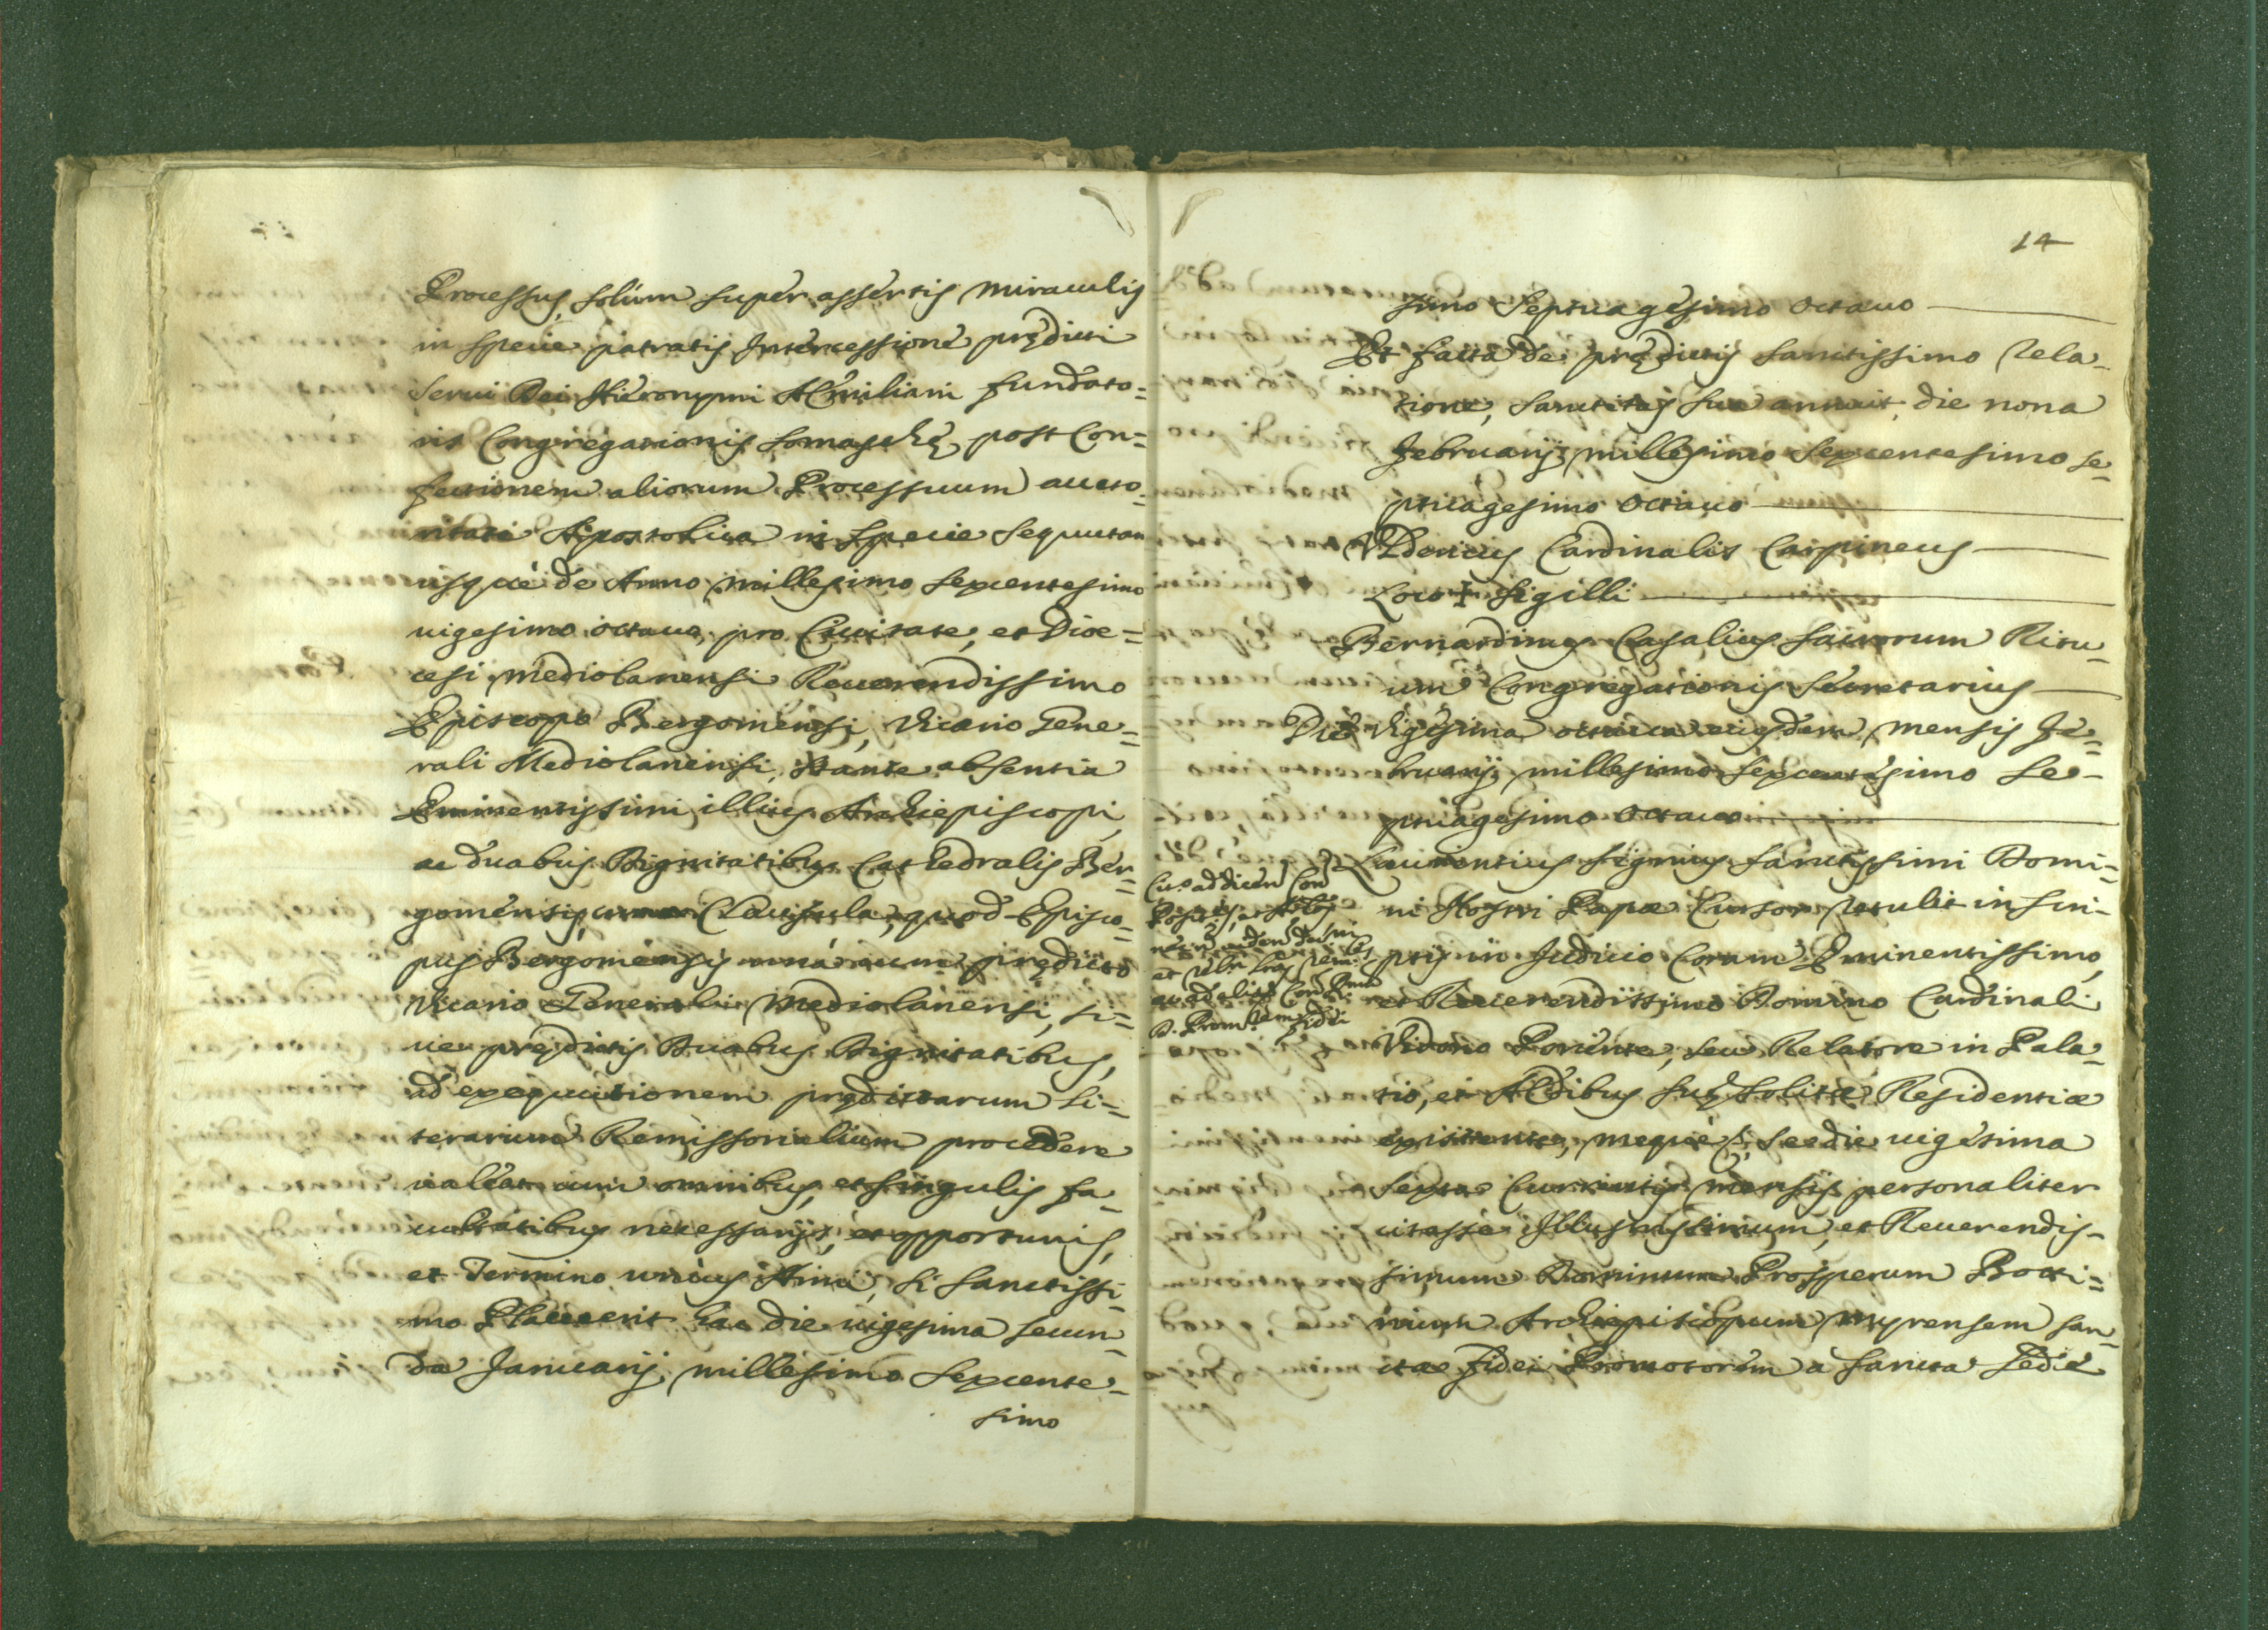 Processus, solùm supèr assèrtis miraculis
in specie patratis Intercessione prędicti
Serui Dei Hieronymi AEmiliani fundato=
ris Congregationis Somaschę, post Con=
fectionem aliorum Processuum aucto=
ritate Apostolica in specie sequutam
usquè de Anno millesimo sexcentesimo
uigesimo octauo, pro Ciuitate, et Dioe=
cesi Mediolanensi Reuerendissimo
Episcopo Bergomensi, Vicario Gene=
rali Mediolanensi, stante absentia
Eminentissimi illius Archiepiscopi,
ac duabus Dignitatibus Cathedralis Ber=
gomensis, Clausula, quod Episco=
pus Bergomensis unà cum prędicto
Vicario Generali Mediolanensi, si=
ue prędictis Duabus Dignitatibus,
ad exequutionem prędictarum Li=
terarum Remissorialium procedere
ualeat cum omnibus, et singulis fa=
cultatibus necessarijs, et opportunis,
et Termino unius Anni, si Sanctissi=
mo Placuerit hac die uigesima secun=
da Januarij millesimo sexcente=
simo
14
simo septuagesimo octauo
Et facta de prędictis Sanctissimo rela=
tione, Sanctitas sua annuit, die nona
Februarij millesimo sexcentesimo se=
ptuagesimo octauo
Vldericus Cardinalis Carpineus
Loco + Sigilli
Bernardinus Casalius Sacrorum Ritu=
um Congregationis Secretarius
Die Vigesima octaua eiusdem mensis Fe=
bruarij millesimo sexcentesimo se=
ptuagesimo octauo
Laurentius Signius Sanctissimi Domi=
ni Nostri Papæ Cursor retulit in scri=
ptis in Judicio Coram Eminentissimo,
et Reuerendissimo Domino Cardinali
Vidono Ponente, seu Relatore in Pala=
tio, et AEdibus suę solitæ Residentiæ
existente, mequè se die uigesima
sexta Currentis mensis personaliter
citasse Illustrissimum, et Reuerendis=
simum Dominum Prosperum Botti=
nium Archiepiscopum Myrensem San=
ctæ fidei Promotorem a Sancta Sede